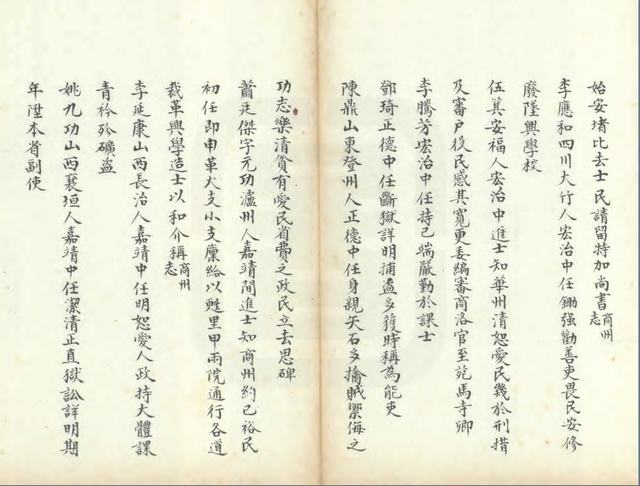 始安堵比去士民請留特加尚書商州志
李應和四川大竹人宏治中任鋤强勸善吏畏民安修
廢墜興學校
伍箕安福人宏治中進士知華州清恕愛民幾於刑措
及審戶役民感其寬更委編審商洛官至苑馬寺卿
李騰芳宏治中任持己端嚴勤於課士
鄧琦正德中任斷獄詳明捕盜多獲時稱為能吏
陳鼎山東登州人正德中任身親矢石多擒賊禦侮之
功志樂清貧有愛民省費之政民立去思碑
蕭廷傑字元功瀘州人嘉靖間進士知商州約己裕民
初任即申革大支小支廩給以甦里甲兩院通行各道
裁革興學造士以和介稱商州志
李延康山西長治人嘉靖中任明恕愛人政持大體課
青衿殄礦盜
姚九功山西襄垣人嘉靖中任潔清正直獄訟詳明期
年陞本省副使